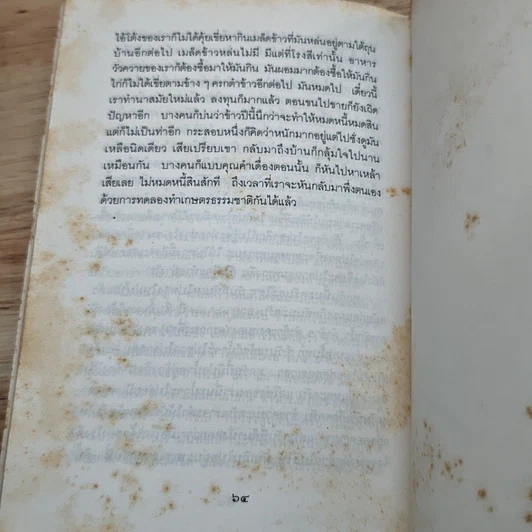 ไอ้โต้งของเราก็ไม่ได้คุ้ยเขี่ยหากินเมล็ดข้าวที่มันหล่นอยู่ตามใต้ถุน
บ้านอีกต่อไป เมล็ดข้าวหล่นไม่มี มีแต่ที่โรงสีเท่านั้น อาหาร
วัวควายของเราก็ต้องซื้อมาให้มันกิน มันผอมมากต้องซื้อให้มันกิน
ไก่ก็ไม่ได้เขี่ยตามข้าง ๆ ครกตำข้าวอีกต่อไป มันหมดไป เดี๋ยวนี้
เราทำนาสมัยใหม่แล้ว ลงทุนก็มากแล้ว ตอนขนไปขายก็ยังเกิด
ปัญหาอีก บางคนก็บ่นว่าข้าวปีนี้นึกว่าจะทำให้หมดหนี้หมดสิน
แต่ก็ไม่เป็นท่าอีก กระสอบหนึ่งก็คิดว่าหนักมากอยู่แต่ไปชั่งดูมัน
เหลือนิดเดียว เสียเปรียบเขา กลับมาถึงบ้านก็กลุ้มใจไปนาน
เหมือนกัน บางคนก็แบบคุณคำเดื่องตอนนั้น ก็หันไปหาเหล้า
เสียเลย ไม่หมดหนี้สินสักที ถึงเวลาที่เราจะหันกลับมาพึ่งตนเอง
ด้วยการทดลองทำเกษตรธรรมชาติกันได้แล้ว
๖๔